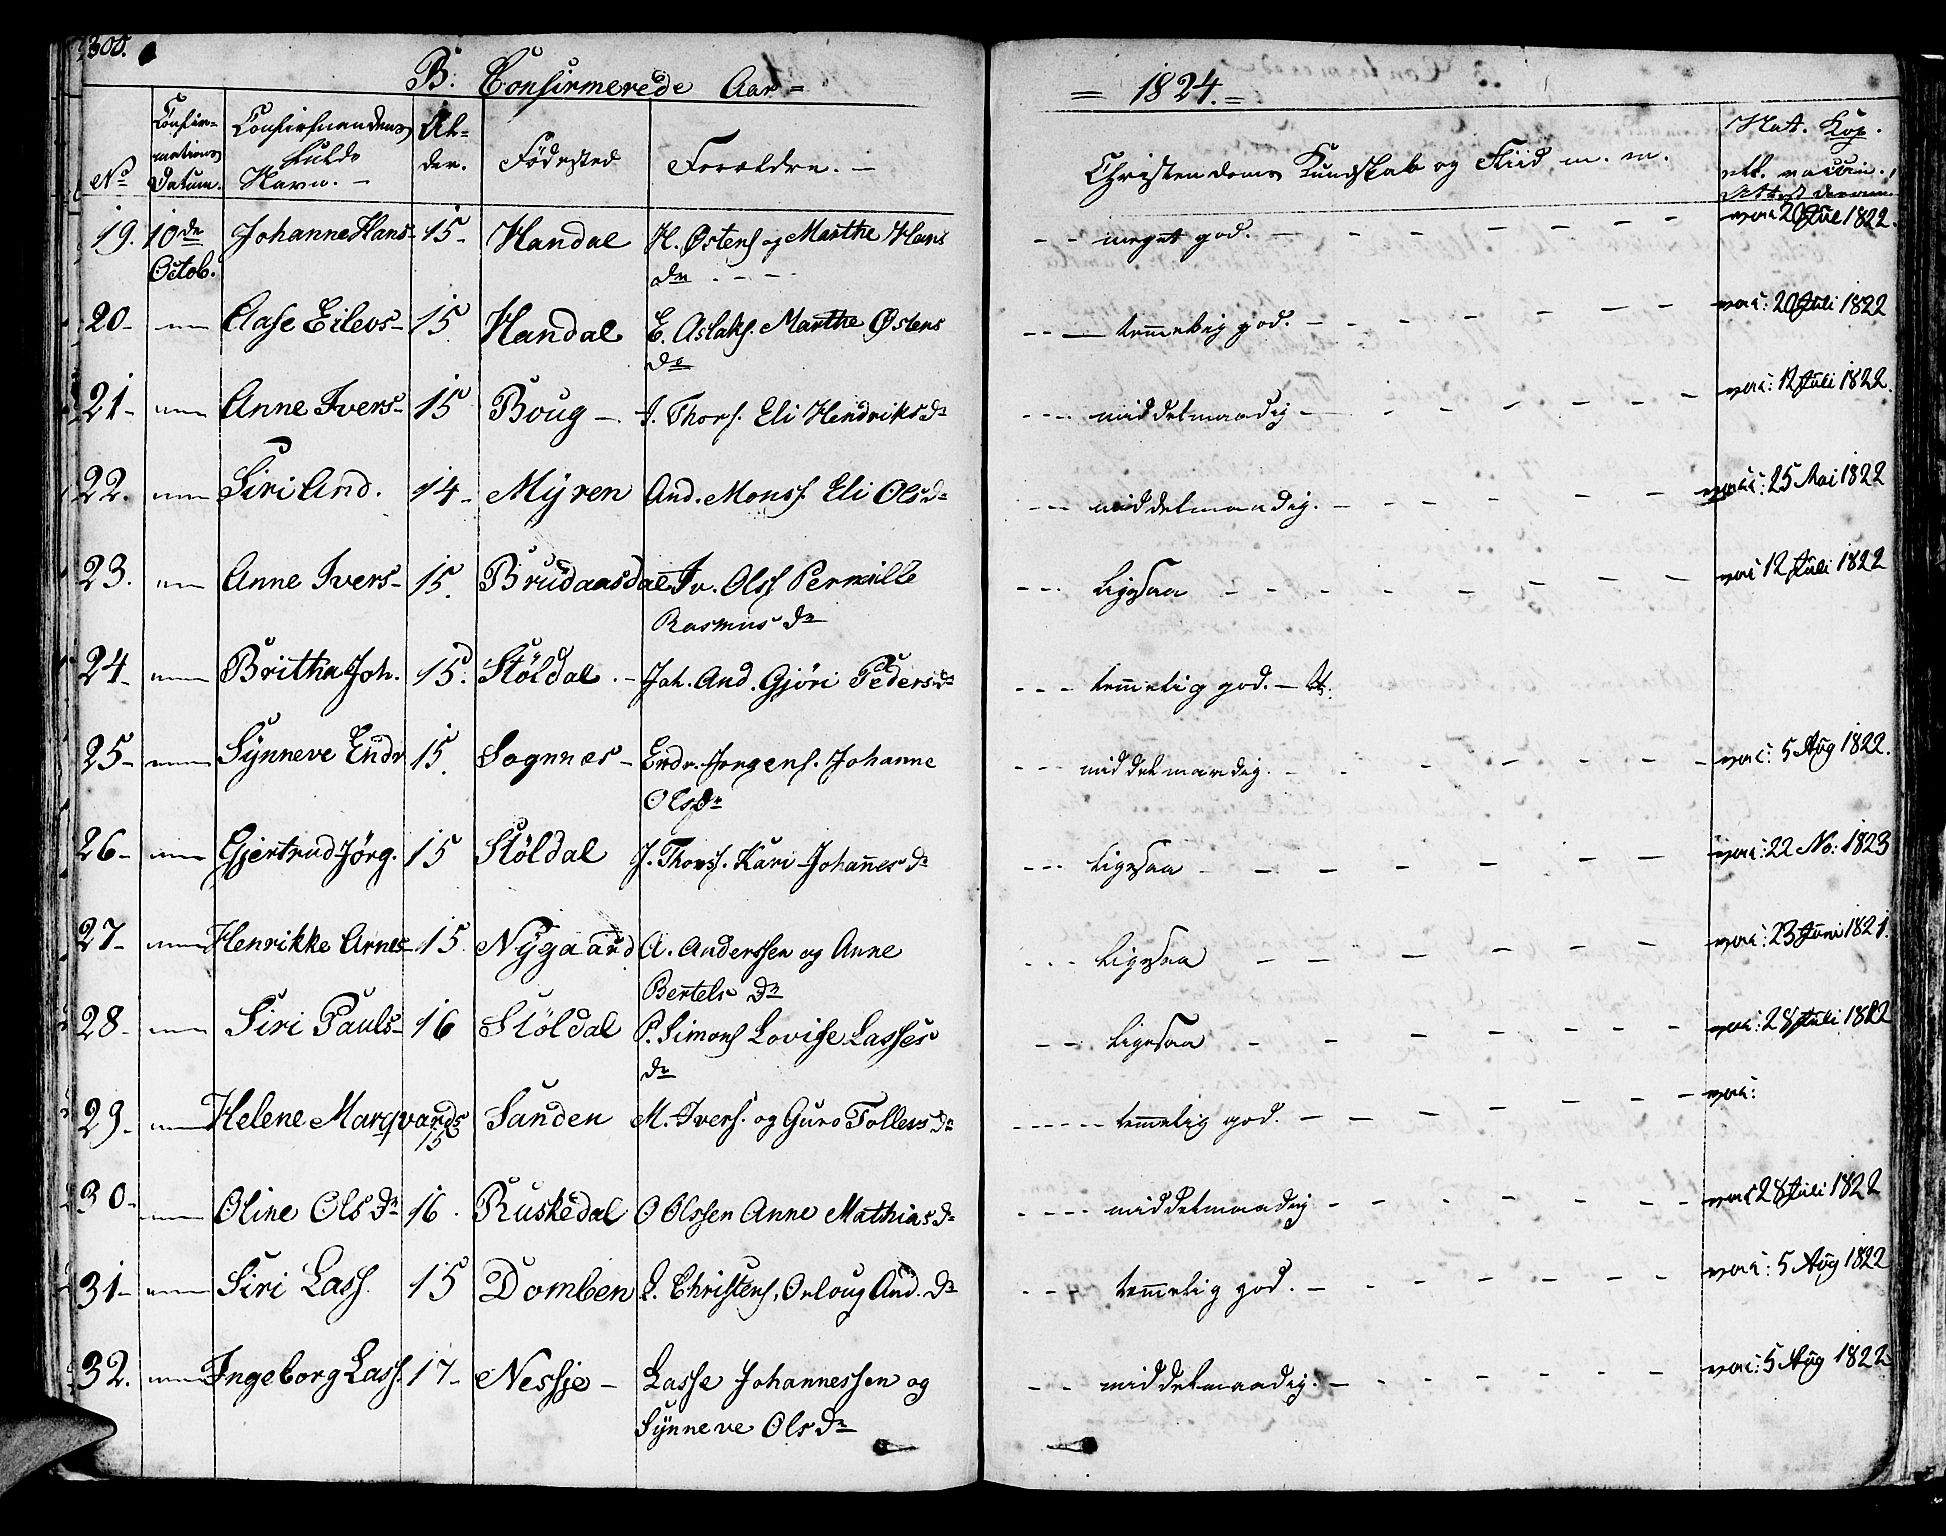 300.
B. Confirmerede Aar = = 1824. =
No Confirmations Datum. Confirmandens fulde Navn. Alder. Födested Forældre. Christendoms Kundskab og Fliid m. m. Nat. Kop. vacc. Attest derom
19. 10de Octob. Johanne Hans- 15- Handal H. Östens og Marthe Hans dr - - meget god. vac: 20 Jul 1822.
20- Aase Eilevs- 15 Handal E. Aslaks. Marthe Östens dr - - temelig god. vac: 20 Juli 1822
21- Anne Ivers- 15 Boug - I. Thors. Eli Hendriks dr - - middelmaadig vac: 12 Juli 1822.
22. Siri And. 14- Mÿren And. Monss. Eli Ols dr - - middelmaadig. vac: 25 Mai 1822
23. Anne Ivers- 15. Brudaasdal Iv. Olss Pernille Rasmus dr - - ligesaa vac 12 Juli 1822
24- Britha Joh. 15. Stöldal - Joh. And. Gjöri Peders dr - - temelig god.
25- Sÿnneve Endr 15. Sognnes - Endr. Jörgens. Johanne Ols dr - - middelmaadig. vac: 5 Aug 1822.
26- Gjertrud Jörg. 15 Stöldal J. Thorss. Kari Johanes dr - - ligesaa vac: 22 No: 1823
27- Henrikke Arnes- 15. Nÿgaard A. Anderssen og Anne Bertels dr - - ligesaa vac: 23 Juni 1821.
28- Siri Pauls- 16 Stöldal P. Simons Lovise Lasses dr - - ligesaa vac: 28 Juli 1822
29- Helene Marqvards 15 Sanden M. Ivers. og Guro Tollevs dr - - temelig god. vac:
30- Oline Ols dr 16. Ruskedal O Olssen Anne Mathias dr - - middelmaadig vac 28 Juli 1822
31- Siri Lass. 15 Domben L. Christens. Orloug And. dr - - temelig god. vac: 5 Aug 1822
32. Ingeborg Lass. 17- Nessje - Lasse Johannessen og Sÿnneve Ols dr - - middelmaadig. vac: 5 Aug 1822